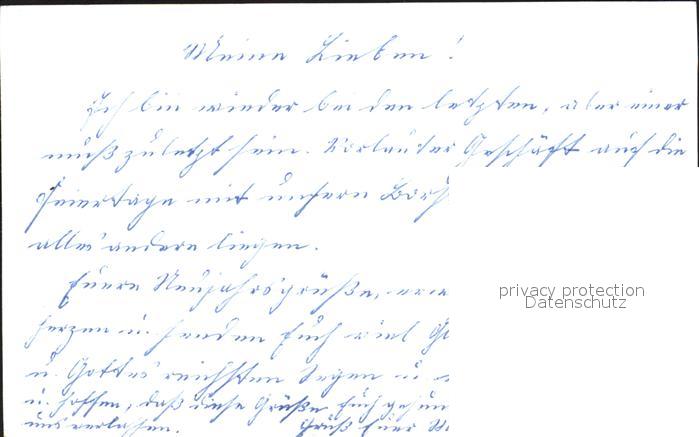 Meine Lieben!
Ich bin wieder bei den letzten, aber einer
muß zuletzt sein. Vor lauter Geschäft auch die
Feiertage mit unsern
alles andere liegen.
Euere Neujahrsgrüße,
herzen u. senden Euch viel
u. Gottes reichsten Segen u.
u. hoffen, daß diese Grüße Euch
uns verlassen. Grüß Euer
privacy protection
Datenschutz